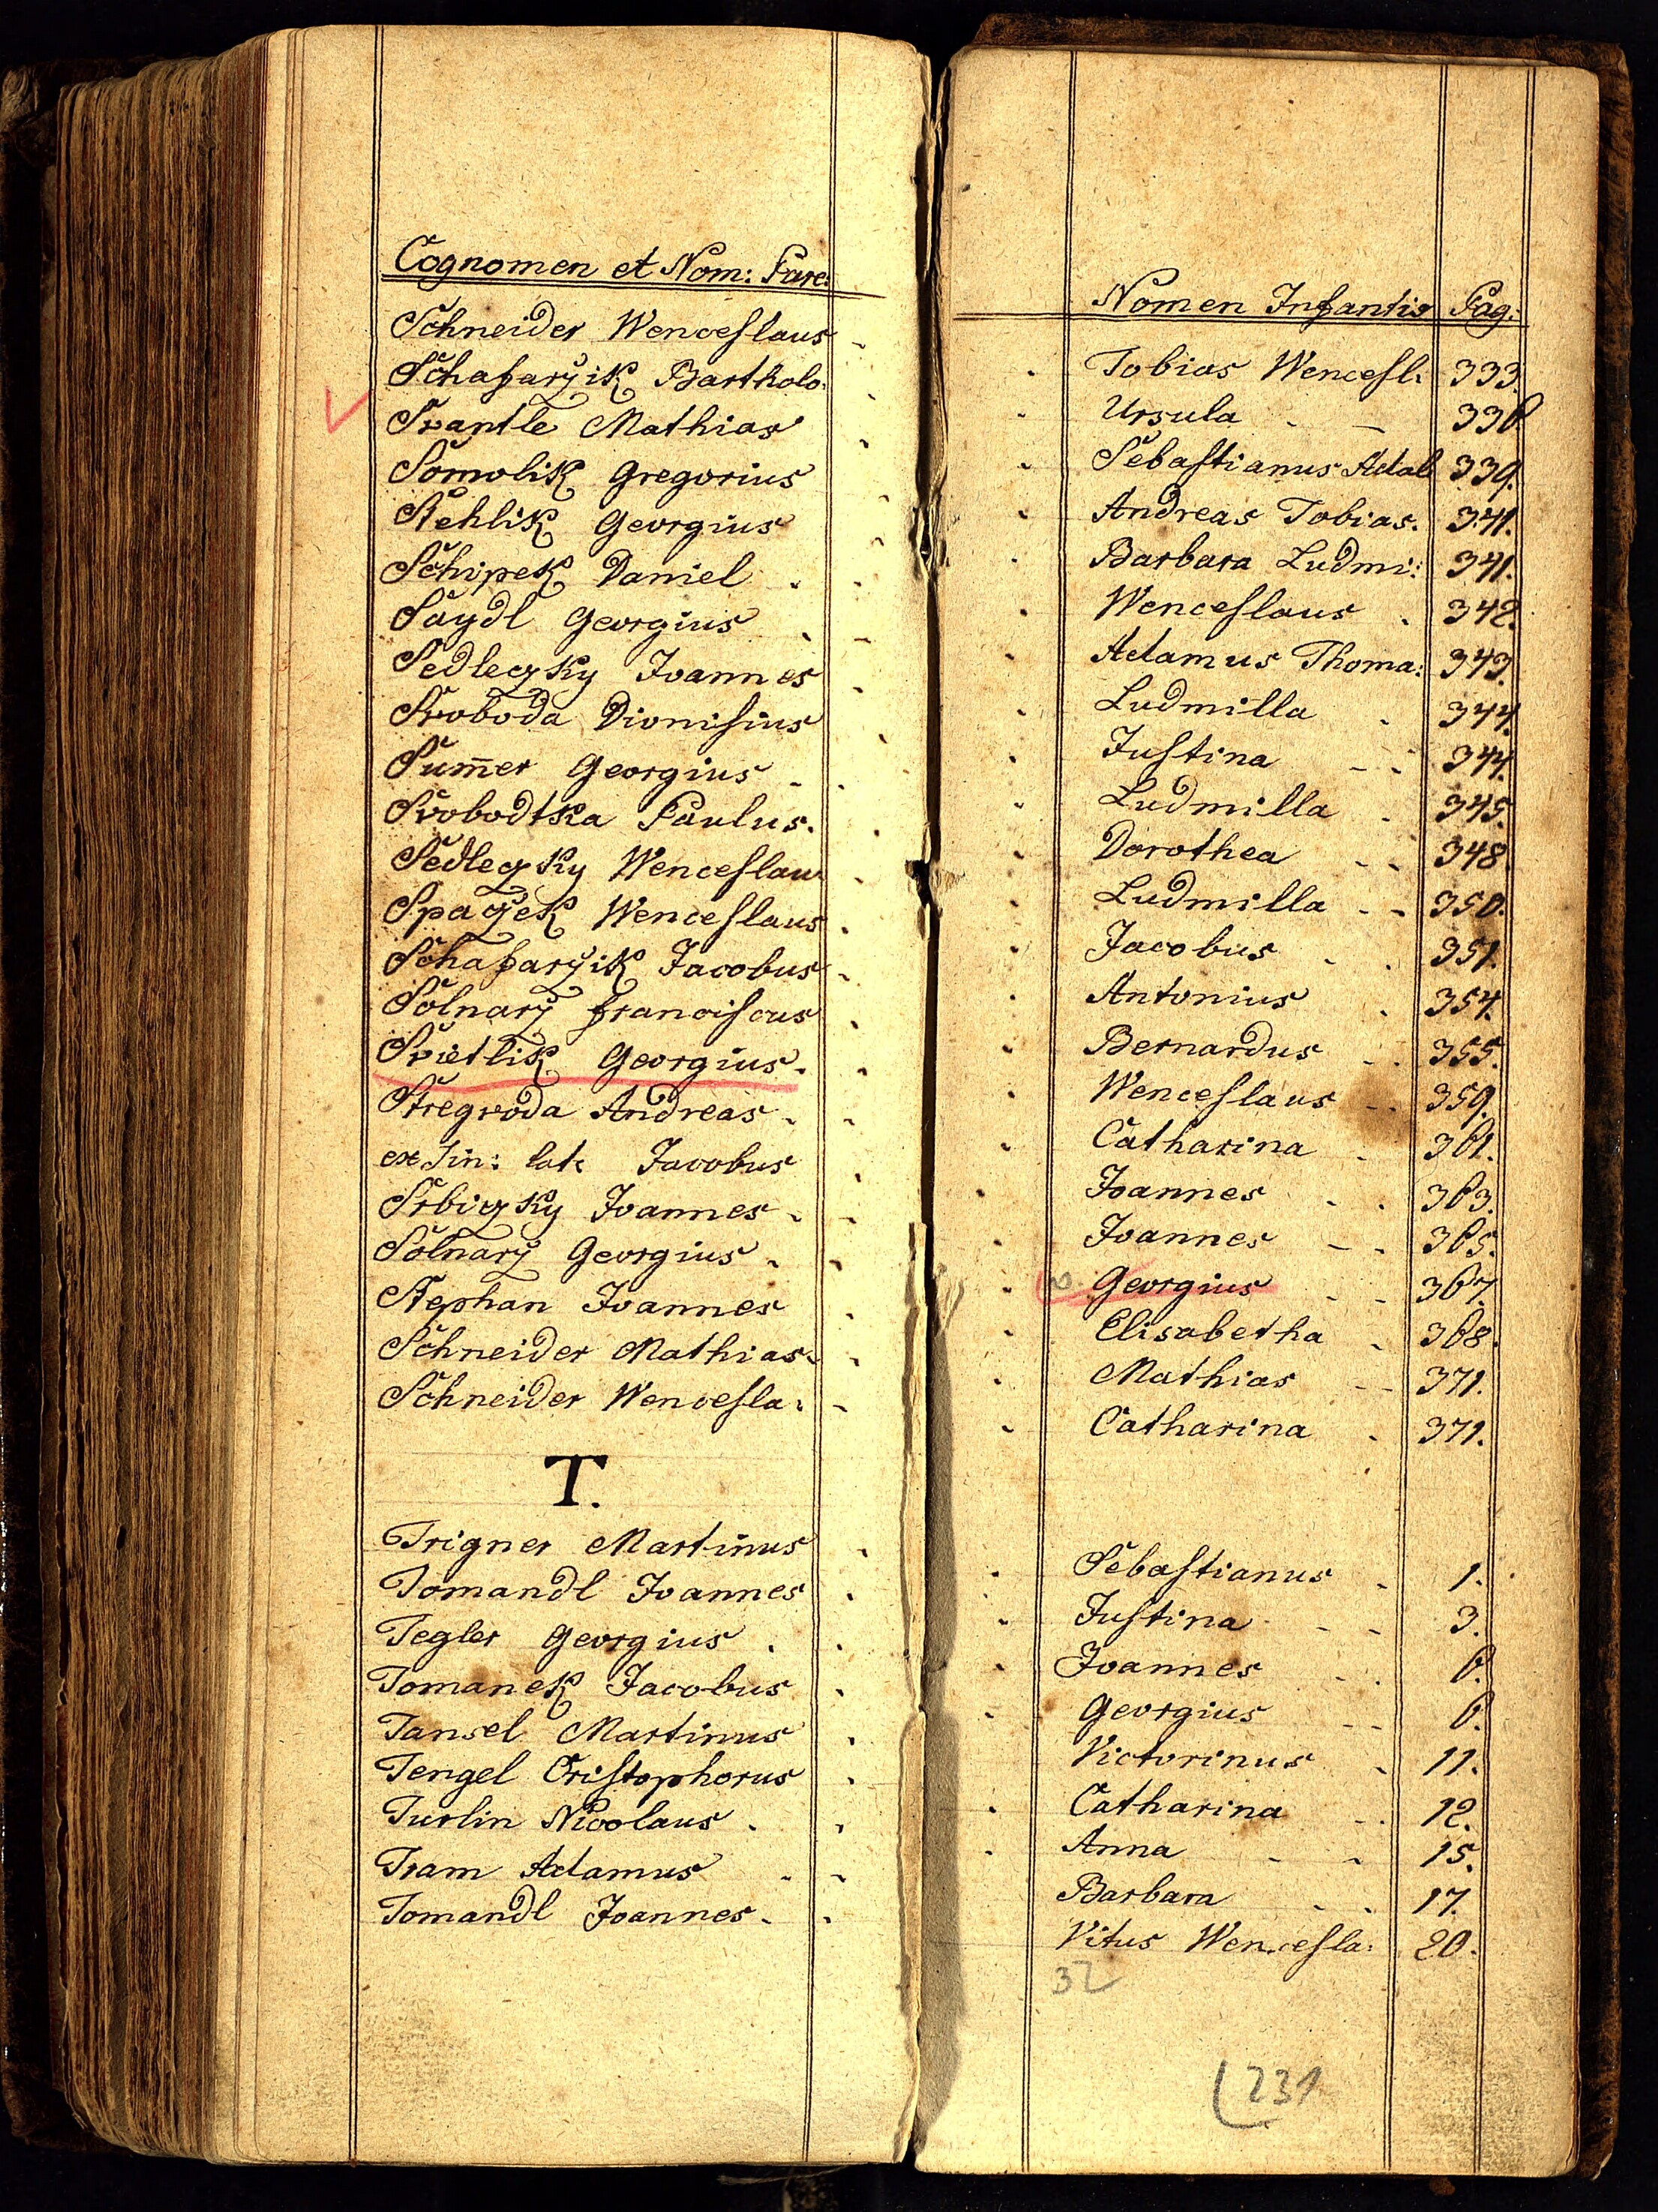 Cognomen et Nom: Pare:
Schneider Wenceslaus
Schafarzik Bartholo:
Swantle Mathias
Somolik Gregorius
Stehlik Georgius
Schipek Daniel
Saydl Georgius
Sedleczky Joannes
Swoboda Dionisius
Sum̄er Georgius
Swobodtka Paulus.
Sedleczky Wenceslaus
Spaczek Wenceslaus
Schafarzik Jacobus
Solnarz Franciscus
Swietlik Georgius.
Stregwoda Andreas
ex Jin: late Jacobus
Srbiczky Joannes
Solnarz Georgius
Stephan Joannes
Schneider Mathias
Schneider Wencesla:
T.
Trigner Martinus
Tomandl Joannes
Tegler Georgius
Tomanek Jacobus
Tansel Martinus
Tengel Cristophorus
Turlin Nicolaus
Tram Adamus
Tomandl Joannes
Nomen Infantis Pag:
Tobias Wencesl: 333.
Ursula 336.
Sebastianus Adal 339.
Andreas Tobias. 341.
Barbara Ludmi: 341.
Wenceslaus 342.
Adamus Thoma: 343.
Ludmilla 344.
Justina 344.
Ludmilla 345.
Dorothea 348.
Ludmilla 350.
Jacobus 351.
Antonius 354.
Bernardus 355.
Wenceslaus 359.
Catharina 361.
Joannes 363.
Joannes 365.
Georgius 367.
Elisabetha 368.
Mathias 371.
Catharina 371.
Sebastianus 1.
Justina 3.
Joannes 6.
Georgius 6.
Victorinus 11.
Catharina 12.
Anna 15.
Barbara 17.
Vitus Wencesla: 20.
32
231